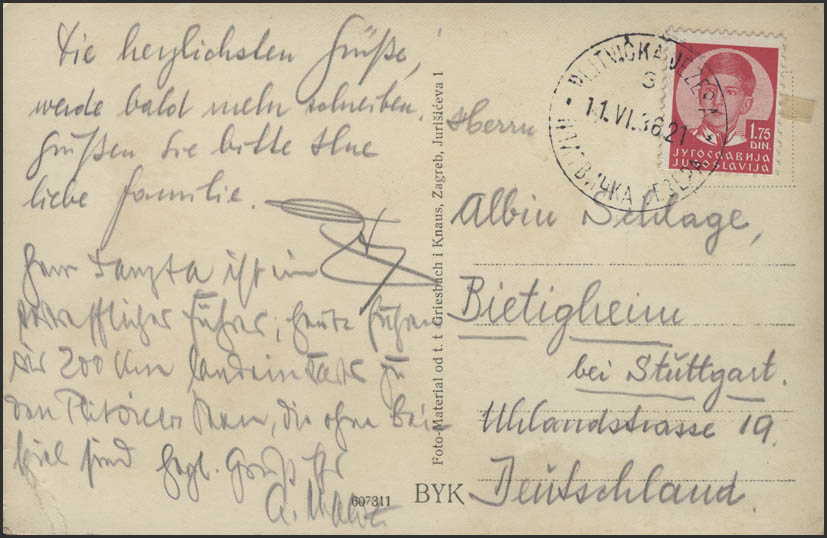 Die herzlichsten Grüße,
werde bald mehr schreiben.
Grüßen Sie bitte Ihre
liebe Familie.
Herr ist ein
vortrefflicher Führer, heute fuhren
wir 200 Km landeinwärts zu
den Plitvicer Seen, die ohne Bei-
spiel sind Hrzl. Gruß Ihr
A.
Foto-Material od t. t. Griesbach i Knaus, Zagreb, Jurišićeva 1
607311 BYK
PLITVIČKA JEZERA
11.VI.36.21
ПЛИТВИЧКА ЈЕЗЕРА
1.75
DIN.
ЈУГОСЛАВИЈА
JUGOSLAVIJA
Herrn
Albin Schlage,
Bietigheim
bei Stuttgart.
Uhlandstrasse 19.
Deutschland.